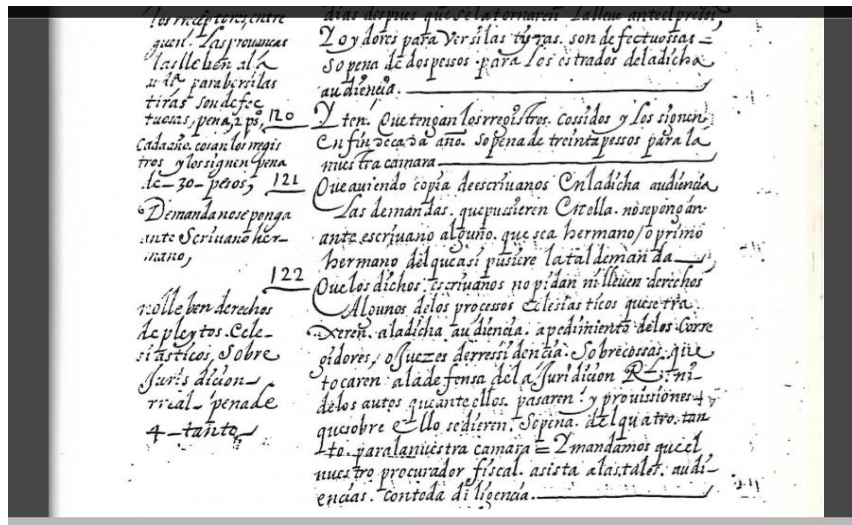 los rreceptores, entre
guen. Las provancas
las lleben al a
para ber si las
tiras son defec
tuosas, pena, 2 ps,
Cada año. cosan los regis
tros y los signen pena
de - 30 - pesos,
Demanda no se ponga
ante Scrivano her-
mano,
nolleben derechos
de pleytos. Ecle-
siasticos, Sobre
Juris dicion
rreal - pena de
4 - tanto
dias despues que se la tornaren la lleve ante el pressi
Y oydores para Ver si las tyras. son defectuossas =
So pena de dos pessos. para Los estrados de la dicha
audiencia.
120
Y ten. Que tengan los rregistros. cossidos y Los signen
En fin de cada año. So pena de treinta pessos para la
nuestra camara
121
Que aviendo copia de escrivanos En la dicha audiencia
Las demandas. que pussieren En ella. no se pongan
ante escrivano alguno. que sea hermano / o primo
hermano del que assi pusiere la tal demanda
122
Que los dichos. escrivanos no pidan ni lleven derechos
Algunos de los processos eclesiasticos que se tra
xeren. a la dicha audiencia. a pedimiento de los Corre
gidores, / o Juezes de rressidencia. Sobre cossas. que
tocaren a la defensa de la Juridicion Rl. ni
de los autos que ante ellos. pasaren. y provissiones
que sobre Ello se dieren. So pena. del quatro. tan
to. para la nuestra camara = Y mandamos que el
nuestro procurador fiscal. asista a las tales. audi-
encias. con toda diligencia.